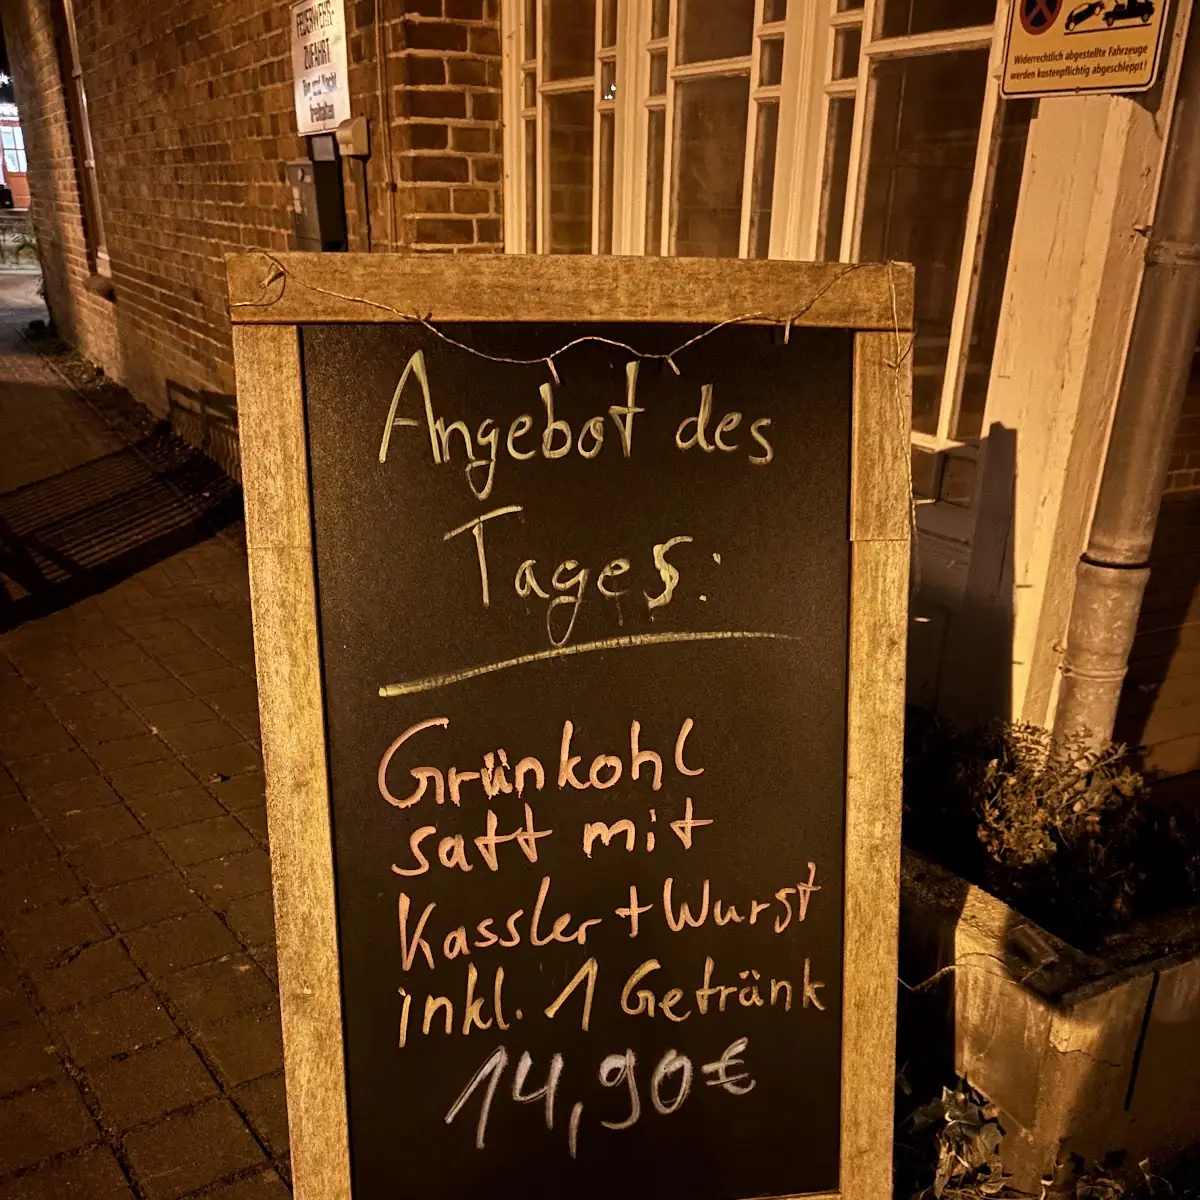 FEUERWEHR-
ZUFAHRT
Tag und Nacht
freihalten
Widerrechtlich abgestellte Fahrzeuge
werden kostenpflichtig abgeschleppt!
Angebot des
Tages:
Grünkohl
satt mit
Kassler + Wurst
inkl. 1 Getränk
14,90€